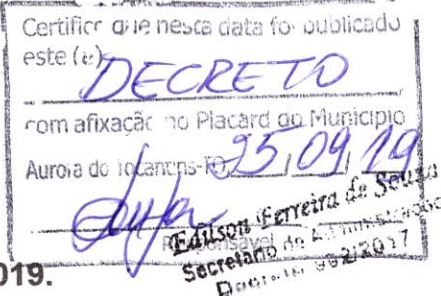 Certifico que nesta data foi publicado
este (a) DECRETO
com afixação no Placard do Município
Aurora do Tocantins-TO, 25, 09, 19
Responsável
Edilson Ferreira de Souza
Secretário de Administração
Decreto
019.